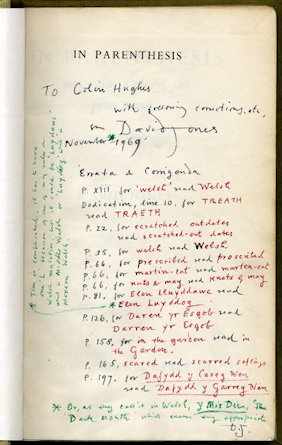 IN PARENTHESIS
TO Colin Hughes
with
David Jones
November * 1969
Errata & Corrigenda
P. XIII, for 'welsh' read Welsh
Dedication, line 10, for TREATH
read TRAETH
P. 22, for scratched outdates
read scratched-out dates
P. 35, for welsh read Welsh
P. 66, for prescribed read proscribed
P. 66, for martin-cat read marten-cat
P. 66, for nuts & may, read knots of may
P. 81, for Elen Lluyddawc read
* Elen Luyddog
P. 126, for Daren yr Esgob read
Darren yr Esgob
P. 158, for in the garden read in
the Garden.
P. 165, scared read scarred saplings
P. 197. for Dafydd y Careg Wen
read Dafydd y Garreg Wen
* Or, as they call it in Welsh, y Mis Du, 'The
Dark Month' which seems very appropriate
D.J.
* This is complicated, it has to have